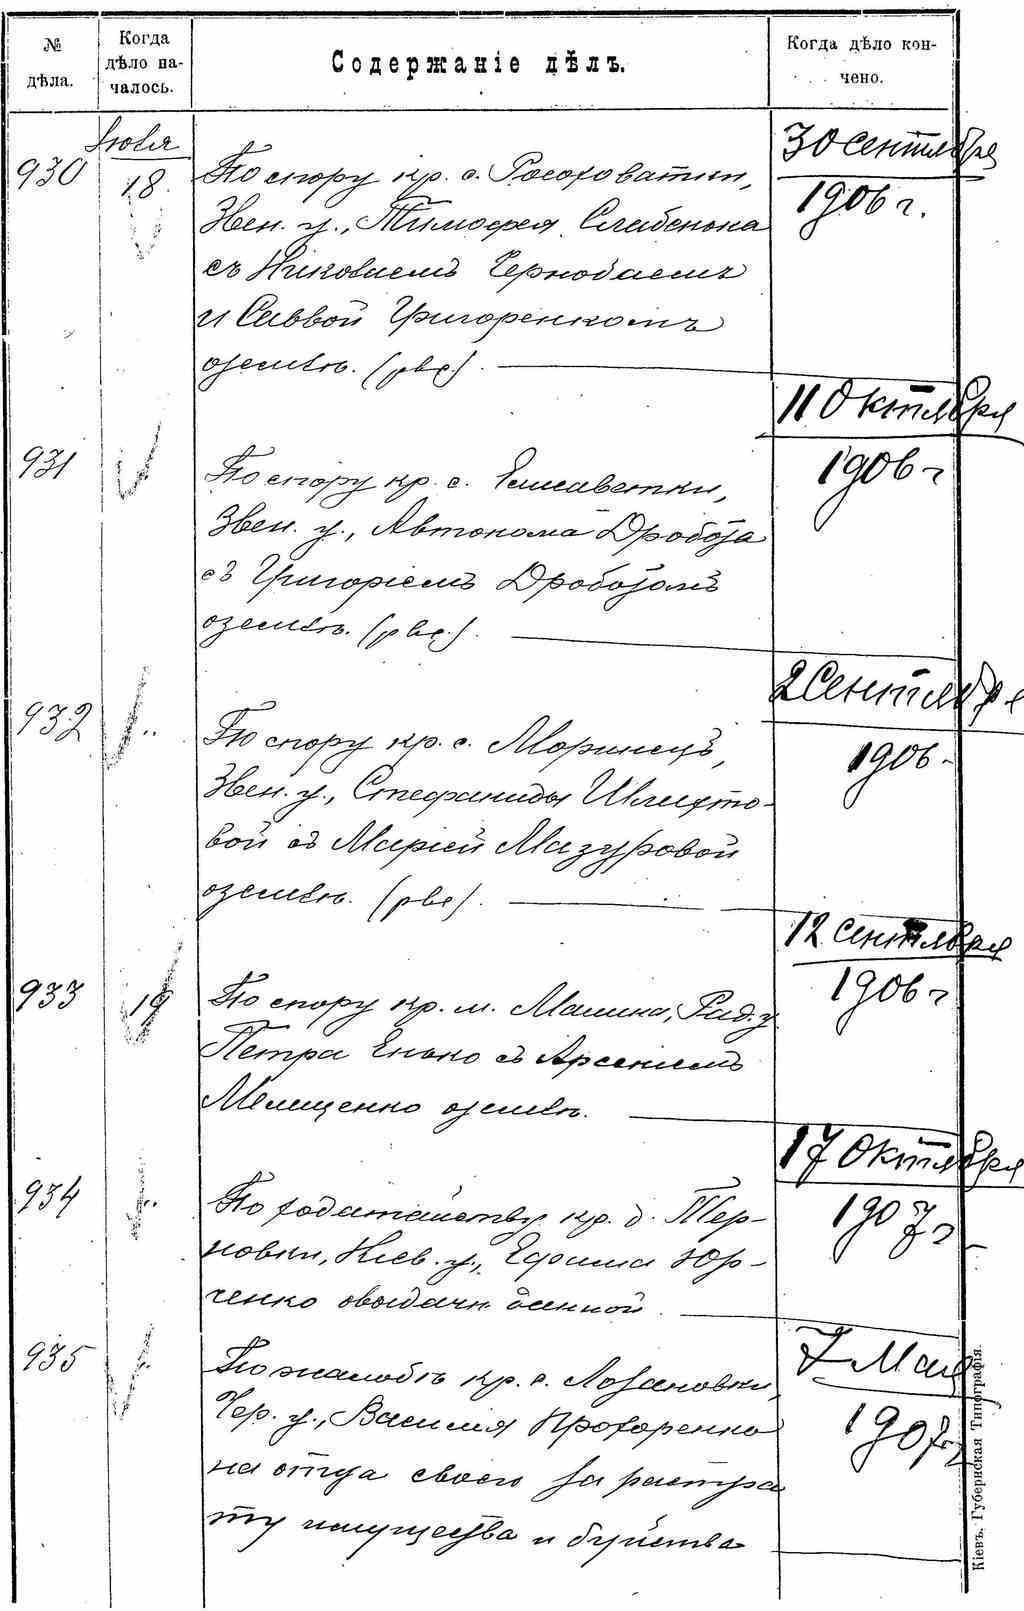 № дѣла.
Когда дѣло на-
чалось.
Содержаніе дѣлъ.
Когда дѣло кон-
чено.
930
Іюля
18
По спору кр. с. Росоховатки,
Звен. у., Тимофея Слабенока
съ Николаемъ Чернобаемъ
и Саввой Григоренкомъ
о землѣ.
30 Сентября
1906 г.
931
По спору кр. с. Елисаветки,
Звен. у., Автонома Дробота
съ Григоріемъ Дроботомъ
о землѣ.
11 Октября
1906 г
932
По спору кр. с. Моринецъ,
Звен. у., Стефаниды Шлихто-
вой съ Маріей Мазуровой
о землѣ.
2 Сентября
1906
933
19
По спору кр. м. Малина, Рад. у
Петра Енько съ Арсеніемъ
Мелещенко о землѣ.
12 Сентября
1906 г
934
По ходатайству кр. д. Тер-
новки, Кіев. у., Ефима Юр-
ченко о выдачѣ данной
17 Октября
1907 г
935
По жалобѣ кр. с. Лозановки,
Чер. у., Василія Прохоренко
на отца своего за растра
ту имущества и буйства
7 Мая
1907 г
Кіевъ. Губернская Типографія.